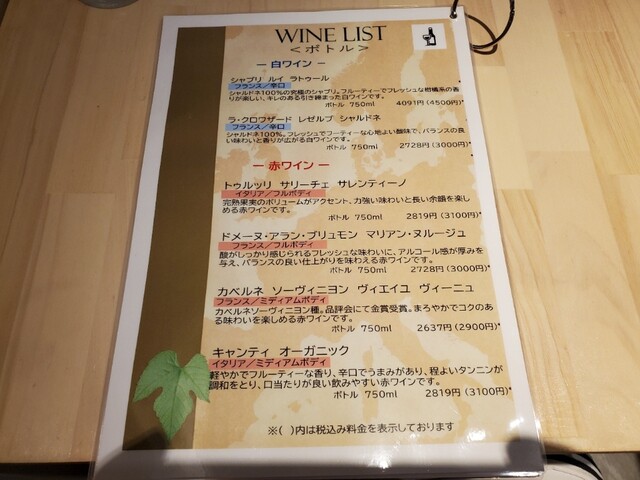 WINE LIST
＜ボトル＞
― 白ワイン ―
シャブリ ルイ ラトゥール
フランス／辛口
シャルドネ100％の究極のシャブリ。フルーティーでフレッシュな柑橘系の香
りが楽しい、キレのある引き締まった白ワインです。
ボトル 750ml 4091円（4500円）*
ラ・クロワザード レゼルブ シャルドネ
フランス／辛口
シャルドネ100％。フレッシュでフーティーな心地よい酸味で、バランスの良
い味わいと香りが広がる白ワインです。
ボトル 750ml 2728円（3000円）*
― 赤ワイン ―
トゥルッリ サリーチェ サレンティーノ
イタリア／フルボディ
完熟果実のボリュームがアクセント、力強い味わいと長い余韻を楽し
める赤ワインです。
ボトル 750ml 2819円（3100円）*
ドメーヌ・アラン・ブリュモン マリアン・ヌルージュ
フランス／フルボディ
酸がしっかり感じられるフレッシュな味わいに、アルコール感が厚みを
与え、バランスの良い仕上がりを味わえる赤ワインです。
ボトル 750ml 2728円（3000円）*
カベルネ ソーヴィニヨン ヴィエイユ ヴィーニュ
フランス／ミディアムボディ
カベルネソーヴィニヨン種。品評会にて金賞受賞。まろやかでコクのあ
る味わいを楽しめる赤ワインです。
ボトル 750ml 2637円（2900円）*
キャンティ オーガニック
イタリア／ミディアムボディ
軽やかでフルーティーな香り、辛口でうまみがあり、程よいタンニンが
調和をとり、口当たりが良い飲みやすい赤ワインです。
ボトル 750ml 2819円（3100円）*
※（ ）内は税込み料金を表示しております